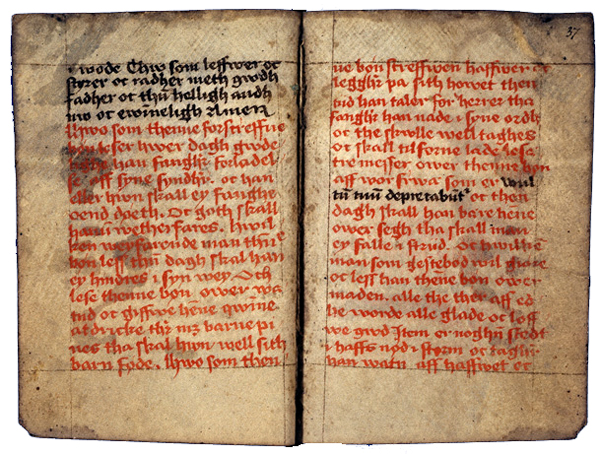 i wode Thw som leffwer oc
styrer oc radher meth gwdh
fadher oc then helligh andh
nw oc ewineligh Amen
Hwo som thenne forstreffne
bon leser hwer dagh gwde
han fanghr forladel
se aff syne syndhr. oc han
eller hwn skall ey fanghe
oend doeth. Oc goth skall
hanu wetherfares. Hwil
ken weyfarende man thne
bon less thn dagh skal han
ey hindres i syn wey Och
lese thenne bon ower wa
tud oc giffwe hene qwine
at dricke thz mz barne pi
nes tha skal hwn well sith
barn føde. Hwo som then
37
ne bon streffwen haffwer oc
legghr pa sith howet then
tiid han taler for herrer tha
fanghr han nade i syne ordh
oc the skwlle well taghes
oc skall til forne laden lese
tre messer ower thenne bon
aff worfrwa som er wul
tu tuu deprecabunt oc then
dagh skall hon bare hene
ower segh tha skall man
ey falle i striid. Oc hwilke
man som gestebod wil giøre
oc less han thene bon ower
maden. alle the ther aff ed
he worde alle glade oc loff
we gwd Item er noghn stedt
i haffs nød i storm oc taghr
han watn aff haffwet oc